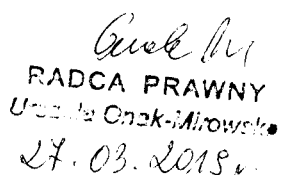 RADCA PRAWNY
Urszula Onak-Mirowska
27.03.2019 r.